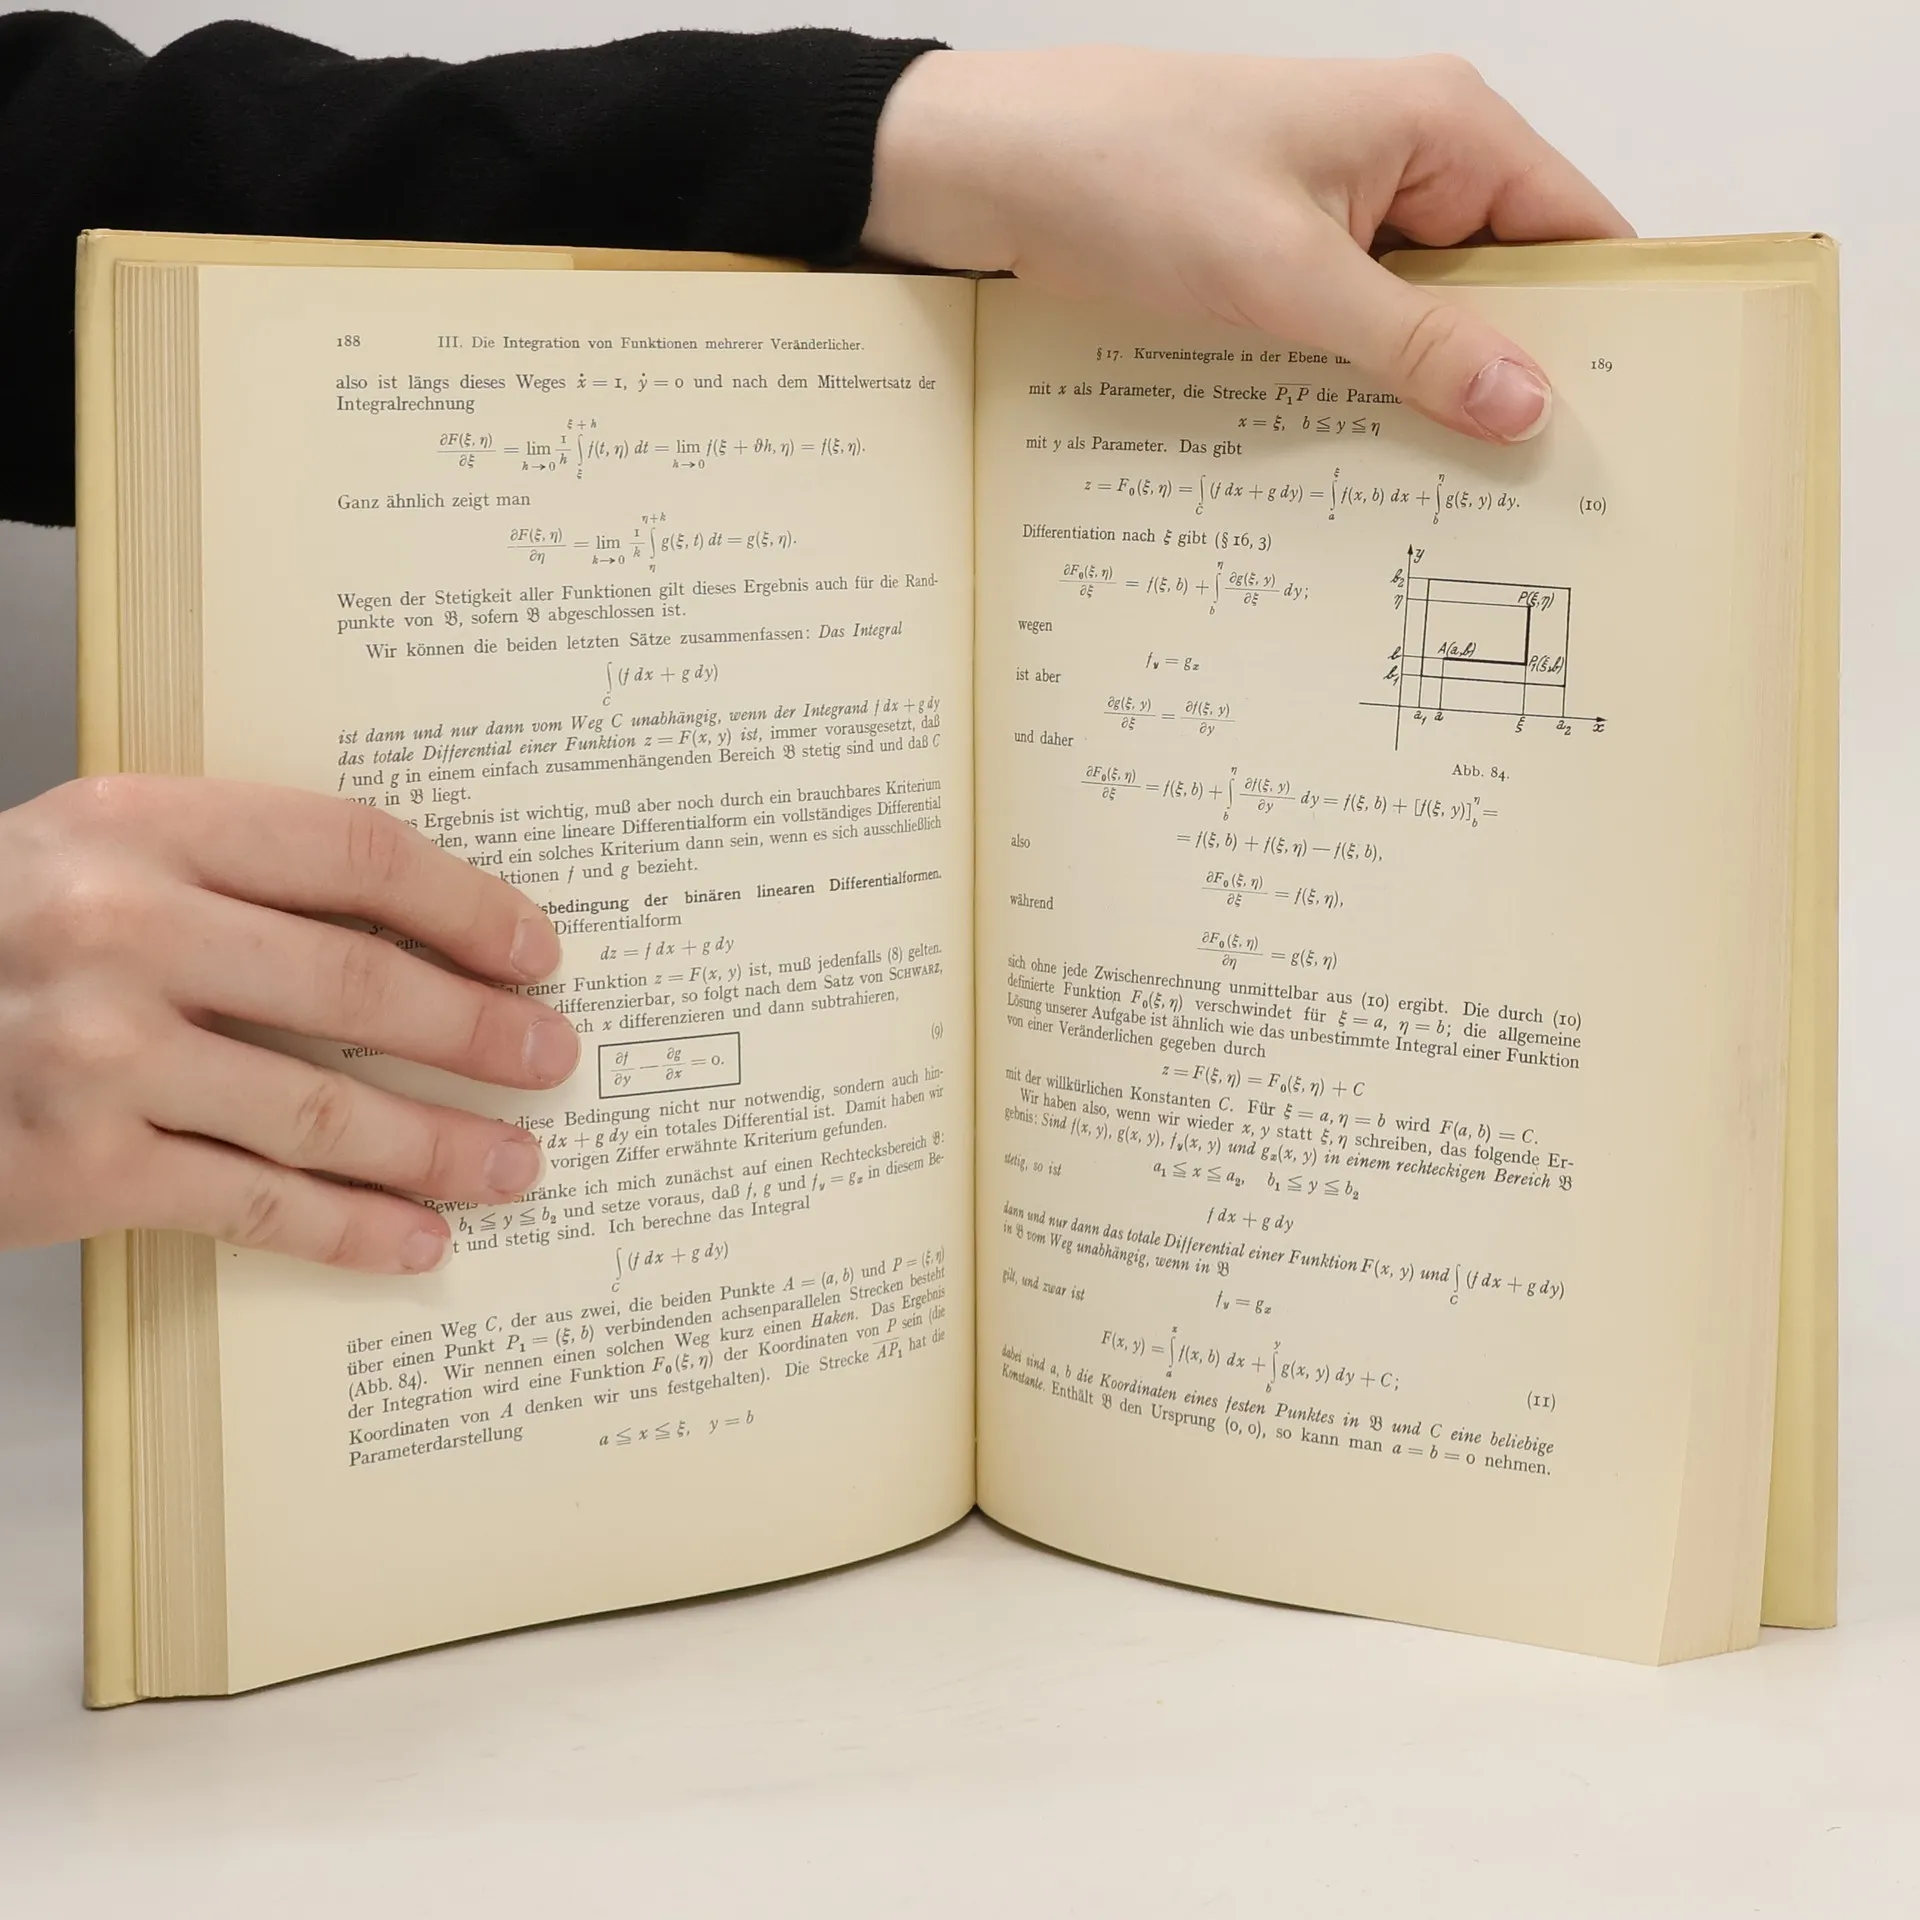 188 III. Die Integration von Funktionen mehrerer Veränderlicher.
also ist längs dieses Weges ẋ = 1, ẏ = 0 und nach dem Mittelwertsatz der
Integralrechnung
∂F(ξ, η)/∂ξ = lim h→0 1/h ∫_ξ^{ξ+h} f(t, η) dt = lim h→0 f(ξ + ϑh, η) = f(ξ, η).
Ganz ähnlich zeigt man
∂F(ξ, η)/∂η = lim k→0 1/k ∫_η^{η+k} g(ξ, t) dt = g(ξ, η).
Wegen der Stetigkeit aller Funktionen gilt dieses Ergebnis auch für die Rand-
punkte von 𝔅, sofern 𝔅 abgeschlossen ist.
Wir können die beiden letzten Sätze zusammenfassen: Das Integral
∫_C (f dx + g dy)
ist dann und nur dann vom Weg C unabhängig, wenn der Integrand f dx + g dy
das totale Differential einer Funktion z = F(x, y) ist, immer vorausgesetzt, daß
f und g in einem einfach zusammenhängenden Bereich 𝔅 stetig sind und daß C
in 𝔅 liegt.
Ergebnis ist wichtig, muß aber noch durch ein brauchbares Kriterium
wann eine lineare Differentialform ein vollständiges Differential
wird ein solches Kriterium dann sein, wenn es sich ausschließlich
f und g bezieht.
der binären linearen Differentialformen.
Differentialform
dz = f dx + g dy
einer Funktion z = F(x, y) ist, muß jedenfalls (8) gelten.
differenzierbar, so folgt nach dem Satz von SCHWARZ,
x differenzieren und dann subtrahieren,
∂f/∂y − ∂g/∂x = 0. (9)
diese Bedingung nicht nur notwendig, sondern auch hin-
dx + g dy ein totales Differential ist. Damit haben wir
vorigen Ziffer erwähnte Kriterium gefunden.
ich mich zunächst auf einen Rechtecksbereich 𝔅:
b₁ ≦ y ≦ b₂ und setze voraus, daß f, g und f_y = g_x in diesem Be-
und stetig sind. Ich berechne das Integral
∫_C (f dx + g dy)
über einen Weg C, der aus zwei, die beiden Punkte A = (a, b) und P = (ξ, η)
über einen Punkt P₁ = (ξ, b) verbindenden achsenparallelen Strecken besteht
(Abb. 84). Wir nennen einen solchen Weg kurz einen Haken. Das Ergebnis
der Integration wird eine Funktion F₀(ξ, η) der Koordinaten von P sein (die
Koordinaten von A denken wir uns festgehalten). Die Strecke AP₁ hat die
Parameterdarstellung
a ≦ x ≦ ξ, y = b
§ 17. Kurvenintegrale in der Ebene 189
mit x als Parameter, die Strecke P₁P die
x = ξ, b ≦ y ≦ η
mit y als Parameter. Das gibt
z = F₀(ξ, η) = ∫_C (f dx + g dy) = ∫_a^ξ f(x, b) dx + ∫_b^η g(ξ, y) dy. (10)
Differentiation nach ξ gibt (§ 16, 3)
∂F₀(ξ, η)/∂ξ = f(ξ, b) + ∫_b^η ∂g(ξ, y)/∂ξ dy;
wegen
f_y = g_x
ist aber
∂g(ξ, y)/∂ξ = ∂f(ξ, y)/∂y
und daher
y
b₂
η
P(ξ,η)
b
A(a,b)
P₁(ξ,b)
b₁
a₁ a ξ a₂ x
Abb. 84.
∂F₀(ξ, η)/∂ξ = f(ξ, b) + ∫_b^η ∂f(ξ, y)/∂y dy = f(ξ, b) + [f(ξ, y)]_b^η =
= f(ξ, b) + f(ξ, η) − f(ξ, b),
also
∂F₀(ξ, η)/∂ξ = f(ξ, η),
während
∂F₀(ξ, η)/∂η = g(ξ, η)
sich ohne jede Zwischenrechnung unmittelbar aus (10) ergibt. Die durch (10)
definierte Funktion F₀(ξ, η) verschwindet für ξ = a, η = b; die allgemeine
Lösung unserer Aufgabe ist ähnlich wie das unbestimmte Integral einer Funktion
von einer Veränderlichen gegeben durch
z = F(ξ, η) = F₀(ξ, η) + C
mit der willkürlichen Konstanten C. Für ξ = a, η = b wird F(a, b) = C.
Wir haben also, wenn wir wieder x, y statt ξ, η schreiben, das folgende Er-
gebnis: Sind f(x, y), g(x, y), f_y(x, y) und g_x(x, y) in einem rechteckigen Bereich 𝔅
a₁ ≦ x ≦ a₂, b₁ ≦ y ≦ b₂
stetig, so ist
f dx + g dy
dann und nur dann das totale Differential einer Funktion F(x, y) und ∫_C (f dx + g dy)
in 𝔅 vom Weg unabhängig, wenn in 𝔅
f_y = g_x
gilt, und zwar ist
F(x, y) = ∫_a^x f(x, b) dx + ∫_b^y g(x, y) dy + C; (11)
dabei sind a, b die Koordinaten eines festen Punktes in 𝔅 und C eine beliebige
Konstante. Enthält 𝔅 den Ursprung (0, 0), so kann man a = b = 0 nehmen.